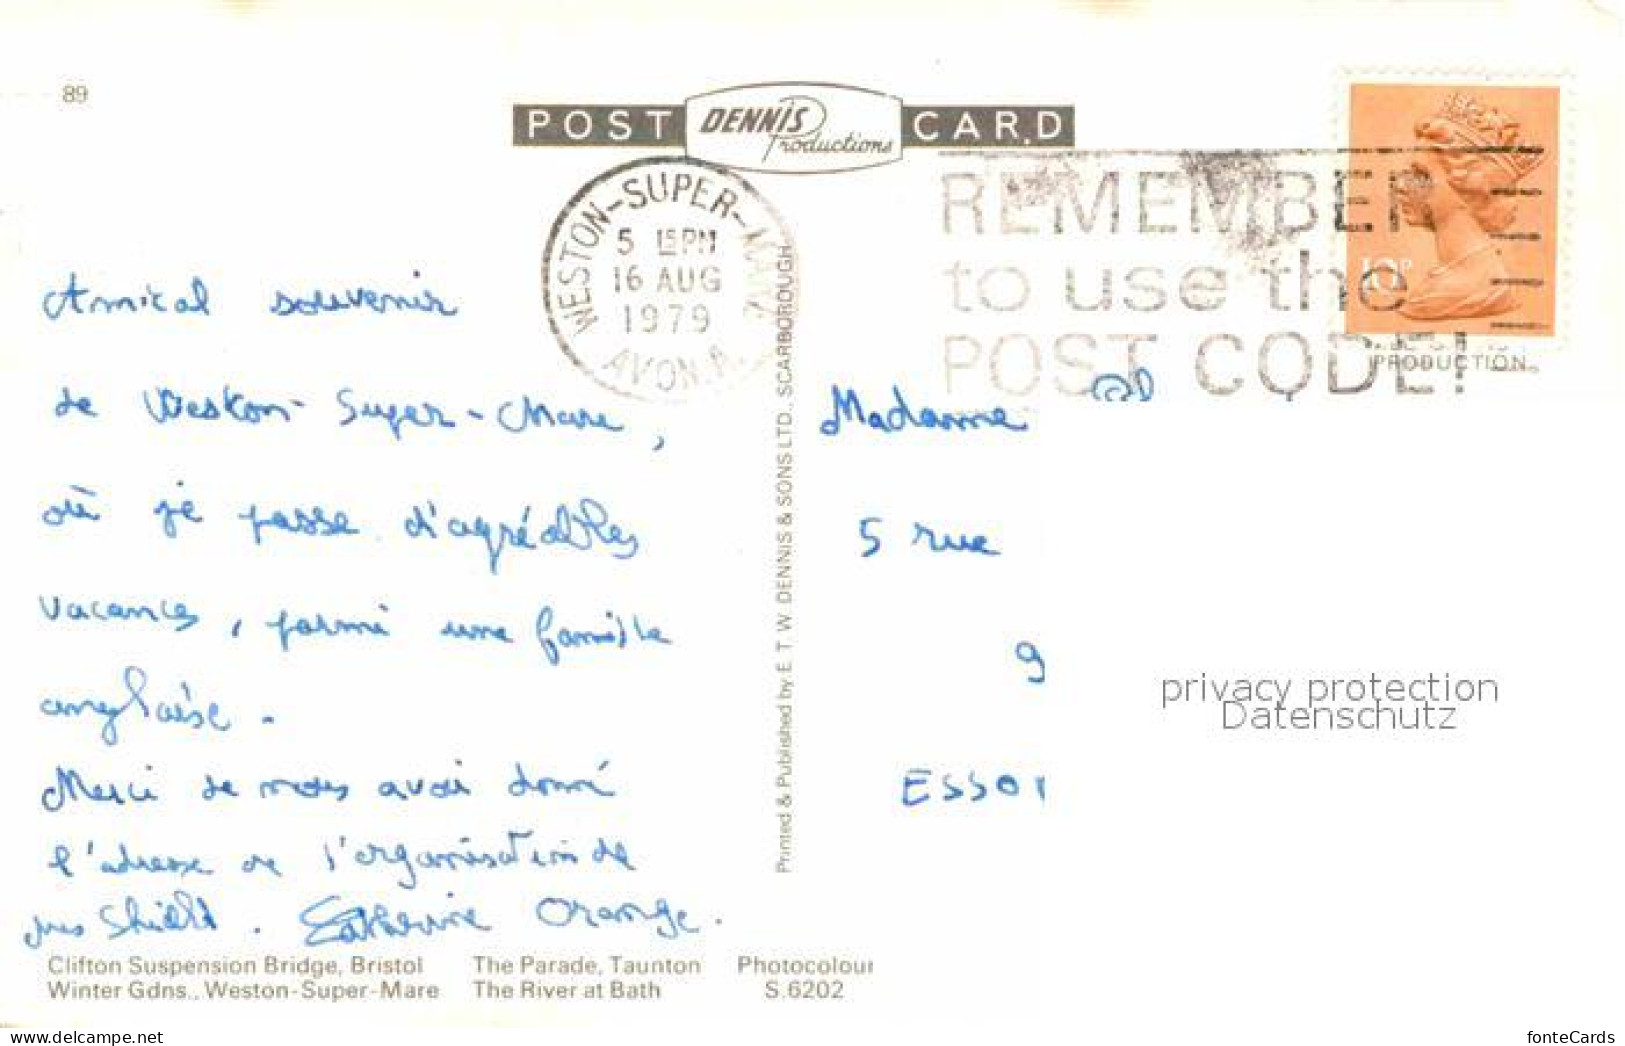 89
POST DENNIS Productions CARD
WESTON-SUPER-MARE
5 15PM
16 AUG
1979
AVON. A
REMEMBER
to use the
POST CODE!
10P
PRODUCTION
Amical souvenir
de Weston-Super-Mare,
où je passe d'agréables
vacances, parmi une famille
anglaise.
Merci de nous avoir donné
l'adresse de l'organisation de
Shield. Catherine Orange.
Printed & Published by E. T. W. DENNIS & SONS LTD., SCARBOROUGH
Madame
5 rue
9
ESSO
privacy protection
Datenschutz
Clifton Suspension Bridge, Bristol The Parade, Taunton Photocolour
Winter Gdns., Weston-Super-Mare The River at Bath S.6202
delcampe.net
fonteCards